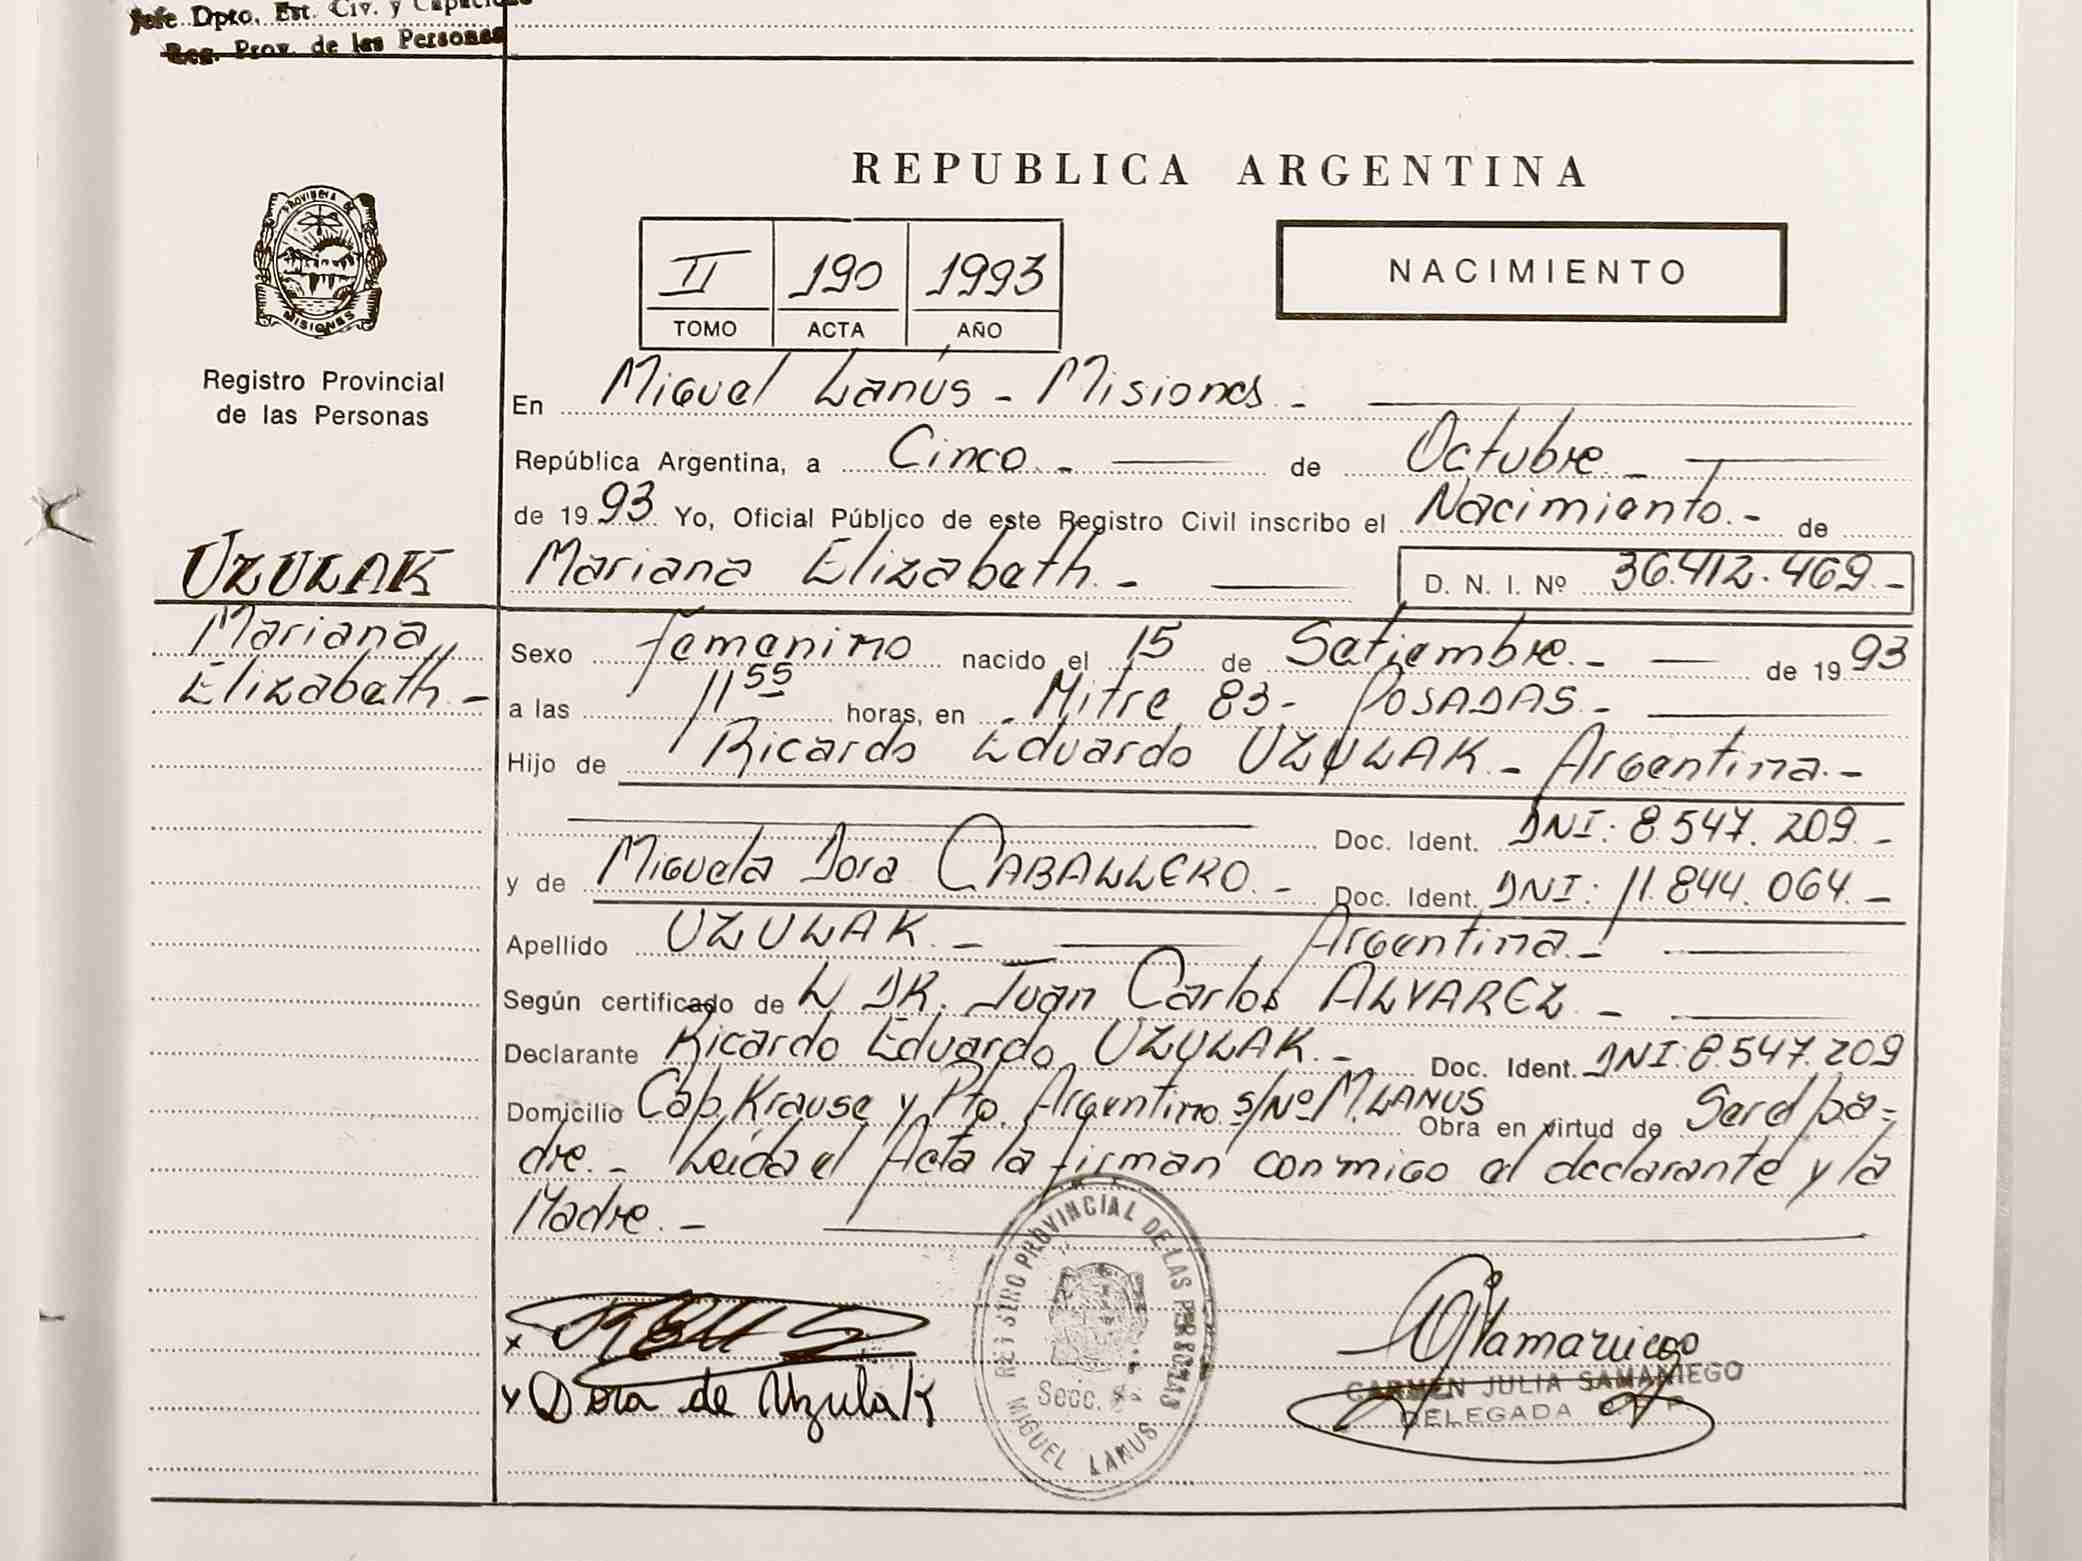 Jefe Dpto. Est. Civ. y Capacidad
Reg. Prov. de las Personas
REPUBLICA ARGENTINA
PROVINCIA DE
MISIONES
II 190 1993
TOMO ACTA AÑO
NACIMIENTO
Registro Provincial
de las Personas
UZULAK
Mariana
Elizabeth.-
En Miguel Lanús - Misiones.-
República Argentina, a Cinco.- de Octubre.-
de 1993 Yo, Oficial Público de este Registro Civil inscribo el Nacimiento.- de
Mariana Elizabeth.- D. N. I. Nº 36.412.469.-
Sexo Femenino nacido el 15 de Setiembre.- de 1993
a las 11 55 horas, en Mitre 83- POSADAS.-
Hijo de Ricardo Eduardo UZULAK.- Argentina.-
Doc. Ident. DNI: 8.547.209.-
y de Miguela Dora CABALLERO.- Doc. Ident. DNI: 11.844.064.-
Apellido UZULAK.- Argentina.-
Según certificado de L DR. Juan Carlos ALVAREZ.-
Declarante Ricardo Eduardo UZULAK.- Doc. Ident. DNI: 8.547.209
Domicilio Cab. Krause y Pto. Argentino s/Nº M. LANUS Obra en virtud de Ser el pa-
dre.- Leída el Acta la firman conmigo el declarante y la
Madre.-
REGISTRO PROVINCIAL DE LAS PERSONAS
Secc.
MIGUEL LANUS
x
x Dora de Uzulak
CJSamaniego
CARMEN JULIA SAMANIEGO
DELEGADA